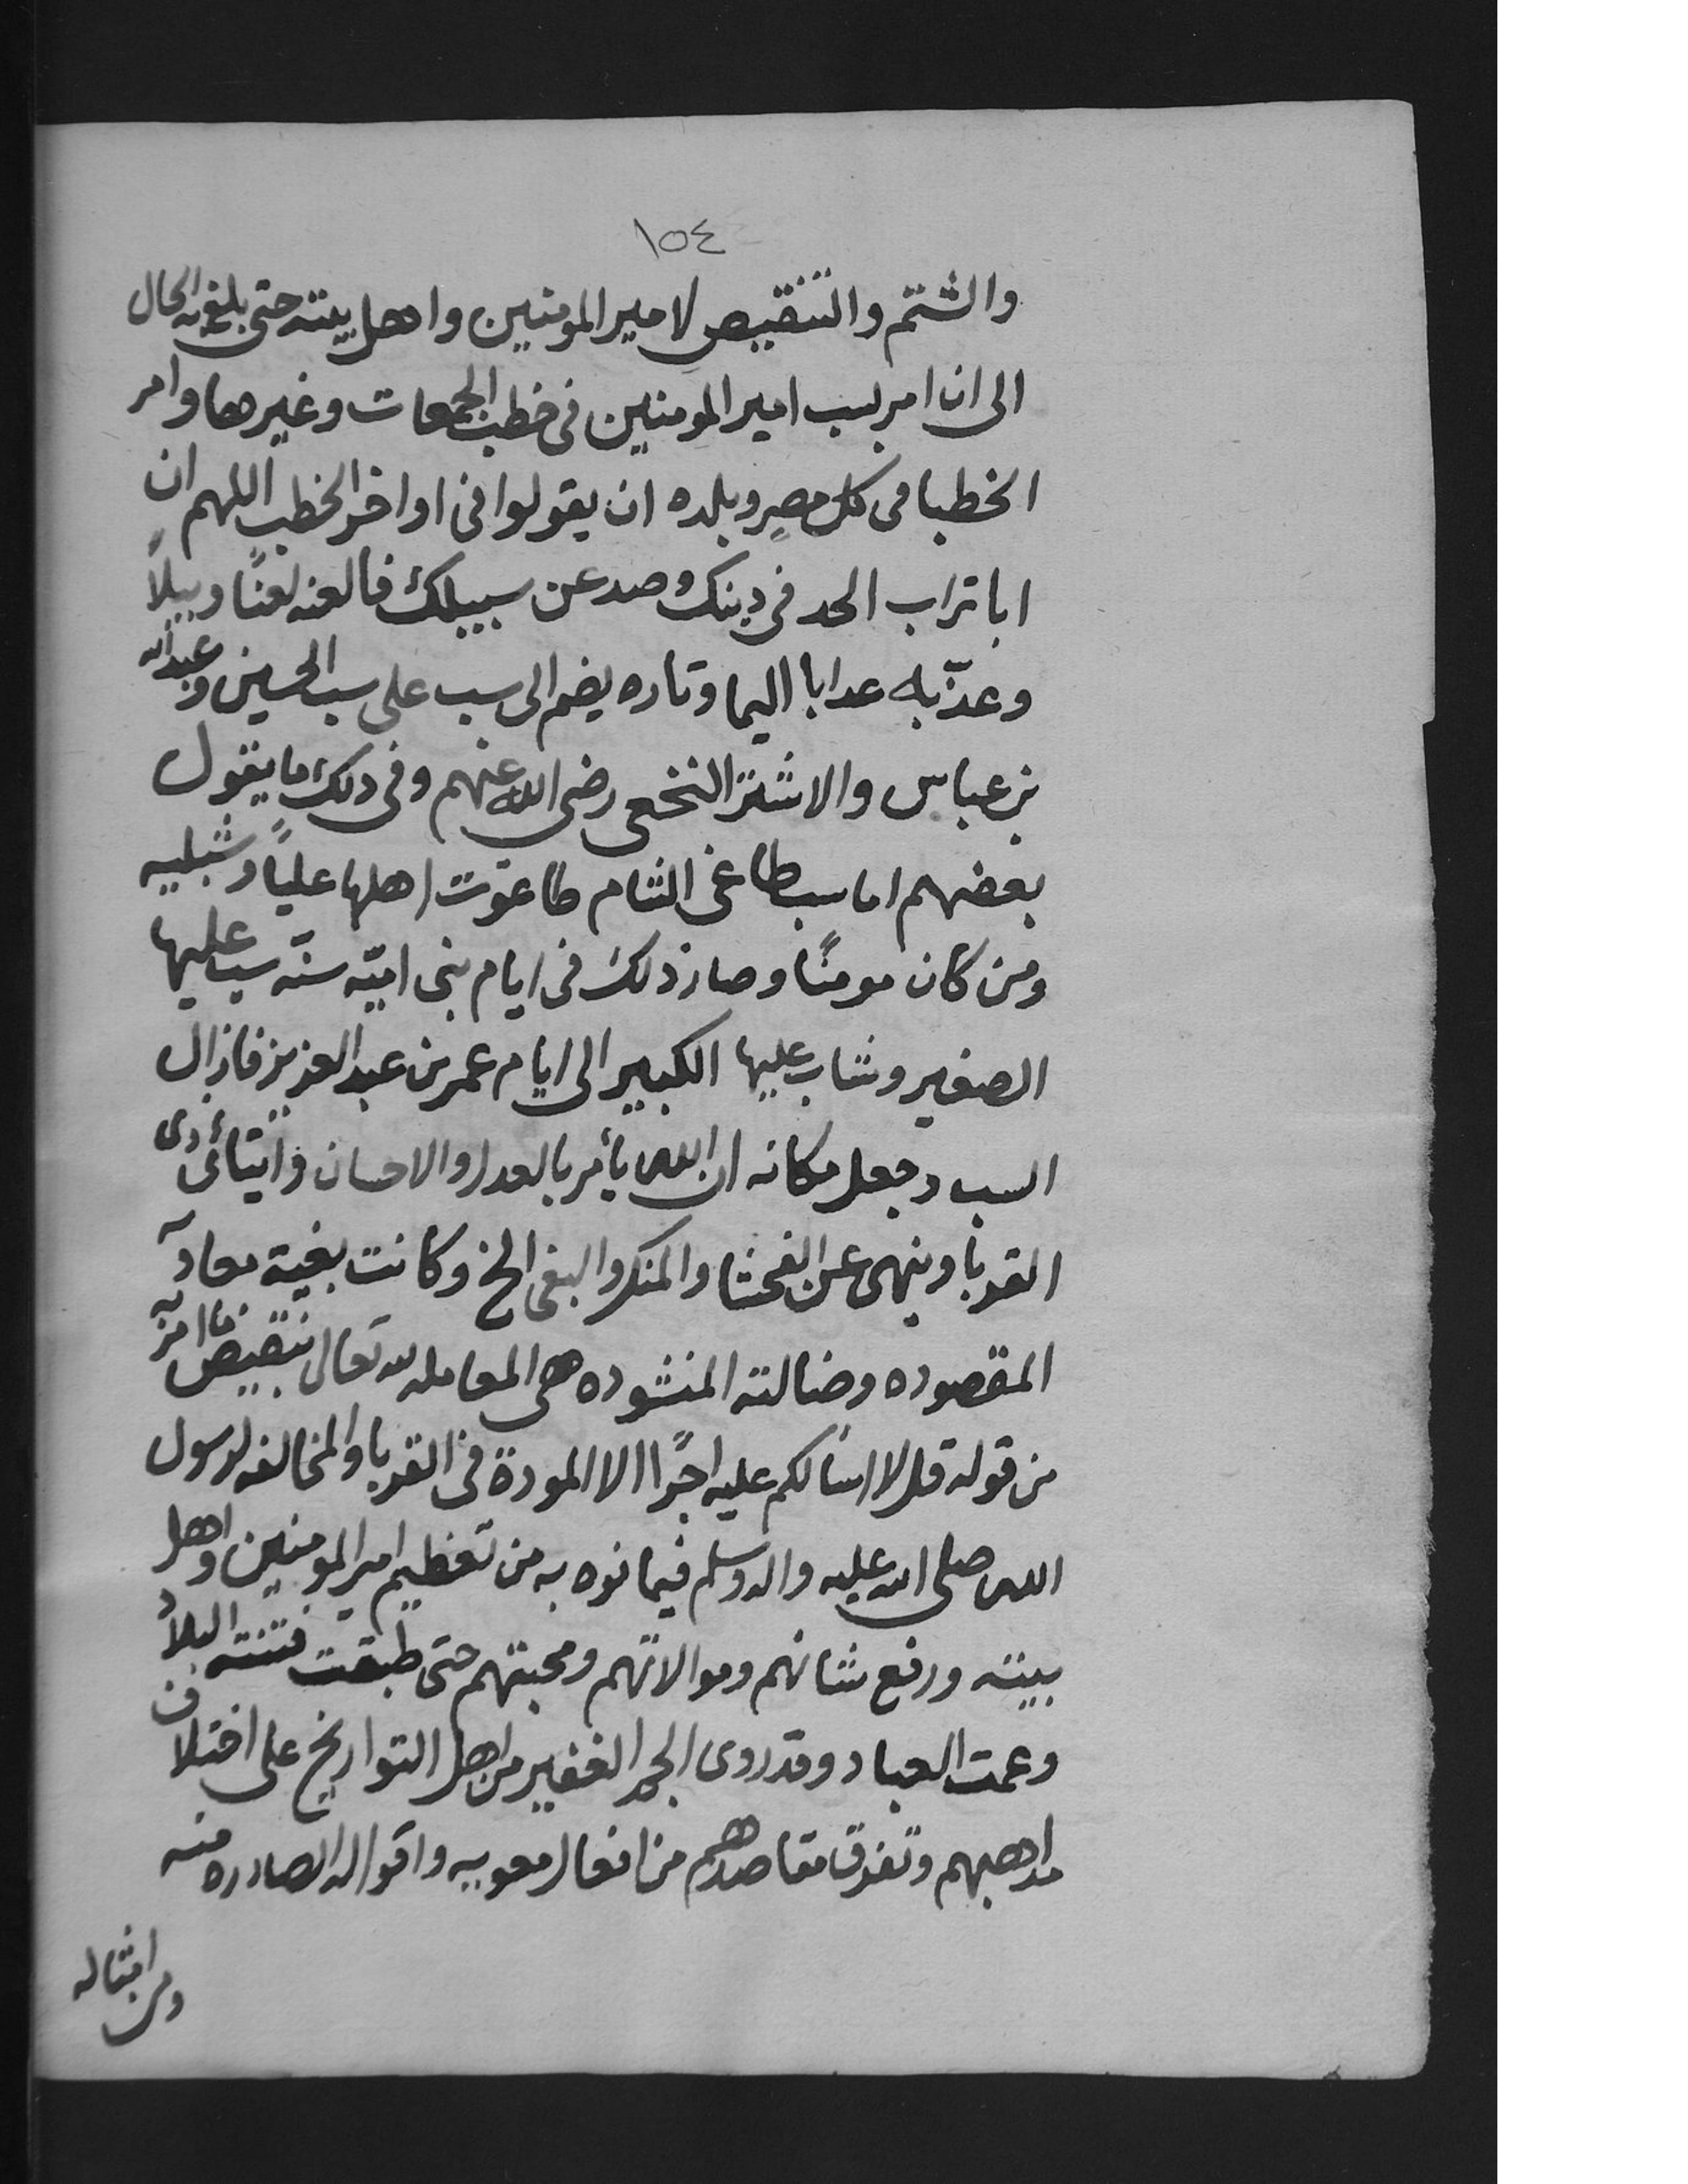 ١٥٤
والشتم والتنقيص لامير المومنين واهل بيته حتى بلغ به الحال
الى ان امر بسب امير المومنين فى خطب الجمعات وغيرها وامر
الخطبا فى كل مصر وبلده ان يقولوا فى اواخر الخطب اللهم ان
ابا تراب الحد فى دينك وصد عن سبيلك فالعنه لعنًا وبيلاً
وعذّبه عدابا اليما وتاره يضم الى سب على سب الحسين وعبدالله
بن عباس والاشتر النخعى رضى الله عنهم وفى دلك ما يقول
بعضهم اما سب طاغى الشام طاغوت اهلها علياً وشبليه
ومن كان مومنًا وصار ذلك فى ايام بنى اميّه سنّه يشب عليها
الصغير وشاب عليها الكبير الى ايام عمر بن عبد العزيز فازال
السب وجعل مكانه ان الله يأمر بالعدل والاحسان وايتائ دى
القربا وينهى عن الفحشا والمنكر والبغى الخ وكانت بغية معاويه
المقصوده وضالته المنشوده هى المعامله لله تعالى بنقيض ما امر به
من قوله قل لا اسالكم عليه اجرًا الا المودة فى القربا والمخالفه لرسول
الله صلى الله عليه واله وسلم فيما نوه به من تعظيم امير المومنين واهل
بيته ورفع شانهم وموالاتهم ومحبتهم حتى طبقت فتنته البلاد
وعمت العباد وقد روى الجم الغفير من اهل التواريخ على اختلاف
مداهبهم وتفرق مقاصدهم من افعال معويه واقواله الصادره منه
ومن امثاله